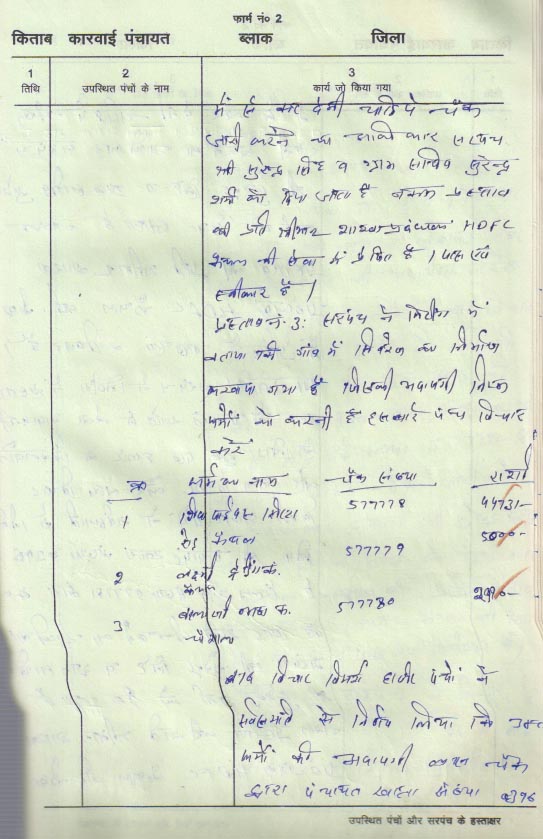 फार्म नं० 2
किताब कारवाई पंचायत ब्लाक जिला
1 2 3
तिथि उपस्थित पंचों के नाम कार्य जो किया गया
में से कर देनी चाहिये चैक
जारी करने का अधिकार सरपंच
श्री सुरेन्द्र सिंह व ग्राम सचिव सुरेन्द्र
शर्मा को दिया जाता है प्रस्ताव
की प्रति श्रीमान शाखा प्रबंधक HDFC
की सेवा में प्रेषित है। पास एवं
स्वीकार है।
प्रस्ताव नं. 3: सरपंच ने मिटींग में
बताया की गांव में का निर्माण
करवाया गया है जिसकी अदायगी निम्न
फर्मों को करनी है इस बारे पंच विचार
करें
क्र फर्म का नाम चैक संख्या राशी
1 577778 44731-
रोड़ कैथल 5000-
577779
2
कैथल 577780
3
बाद विचार विमर्श हाजिर पंचों ने
सर्वसम्मति से निर्णय लिया कि उक्त
फर्मों की अदायगी चैक
द्वारा पंचायत खाता संख्या 0396
उपस्थित पंचों और सरपंच के हस्ताक्षर